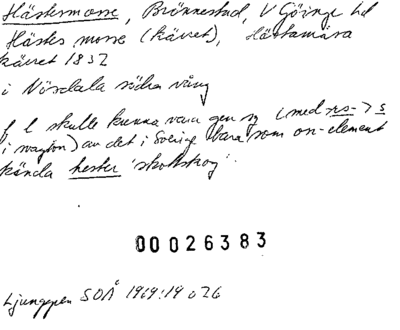 Hästermosse, Brönnestad, V Göinge hd
Hästes mosse (kärret), Hästamåra
kärret 1832
i Nösdala södra vång
f l skulle kunna vara gen sg (med rs- > s
i wayton) av det i Sverige bara som on-element
kända hester 'skottskog'.
00026383
Ljunggren SOÅ 1969:19 o 26